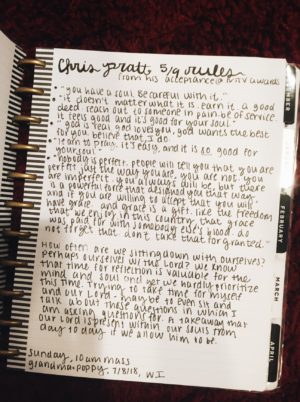 Chris Pratt 5/9 rules
from his acceptance @ MTV awards
- "you have a soul. Be careful with it."
- "it doesn't matter what it is. earn it. a good
deed. reach out to someone in pain. be of service.
it feels good and it's good for your soul."
- "God is real. god loves you, god wants the best
for you. believe that, I do.
- "learn to pray. it's easy, and it is so good for
your soul."
- "nobody is perfect. people will tell you that you are
perfect just the way you are, you are not! you
are imperfect. you always will be, but there
is a powerful force that designed you that way.
and if you are willing to accept that, you will
have grace. and grace is a gift. like the freedom
that we enjoy in this country, that grace
was paid for with somebody else's blood. do
not forget that. don't take that for granted."
How often are we sitting down with ourselves?
perhaps ourselves w/ the Lord? we know
that time for reflection is valuable for the
mind and soul and yet we hardly prioritize
this time. Trying to take time for myself
and our Lord - maybe to even sit and
talk about these questions in which I
am asking questions for. A takeaway that
our Lord is present within our souls from
day to day if we allow him to be.
sunday, 10am mass
grandma + poppy, 7/8/18, WI
FEBRUARY
MARCH
APRIL